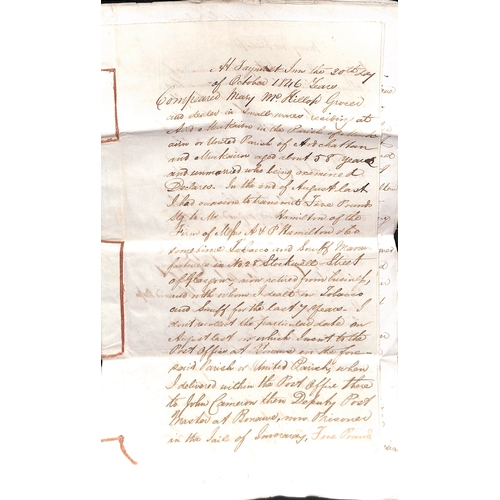 At Taynuilt Inn the 20th day
of October 1846 years
Compeared Mary McKillop Grocer
and dealer in Small wares residing at
Ard Muckairn in the Parish of Muck
airn or United Parish of Ardchattan
and Muckairn aged about 58 years
and unmarried who being examined
Declares. In the end of August last
I had occasion to transmit Five Pounds
Stg to Mr Hamilton of the
Firm of Messrs A & P Hamilton & Co
sometime Tobacco and Snuff Manu
facturers in No 28 Stockwell Street
of Glasgow, now retired from business,
and with whom I dealt in Tobacco
and Snuff for the last 7 years. I
don't recollect the particular date on
August last on which I went to the
Post Office at Bonawe in the fore-
said Parish or United Parish, when
I delivered within the Post Office there
to John Cameron then Deputy Post
Master at Bonawe, now Prisoner
in the Jail of Inveraray, Five Pounds